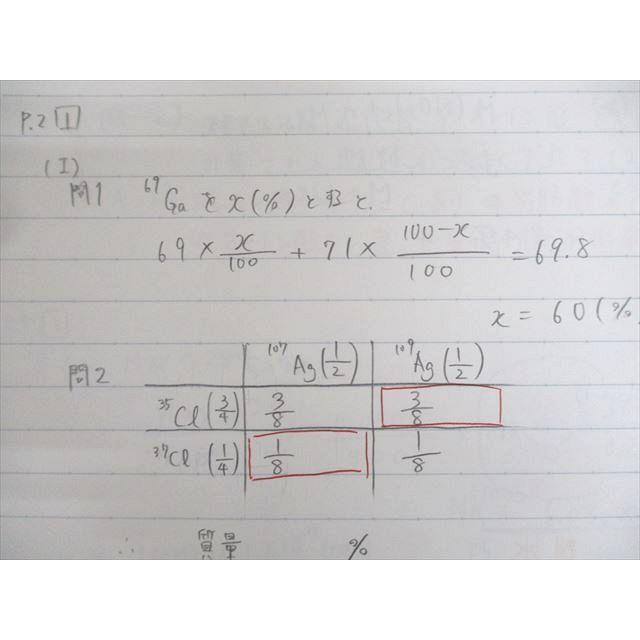 P.2 1
(I)
問1 ⁶⁹Ga を x(%) とおくと.
69 × x/100 + 71 × (100-x)/100 = 69.8
x = 60(%
問2 ¹⁰⁷Ag(1/2) ¹⁰⁹Ag(1/2)
³⁵Cl(3/4) 3/8 3/8
³⁷Cl(1/4) 1/8 1/8
∴ 質量 %